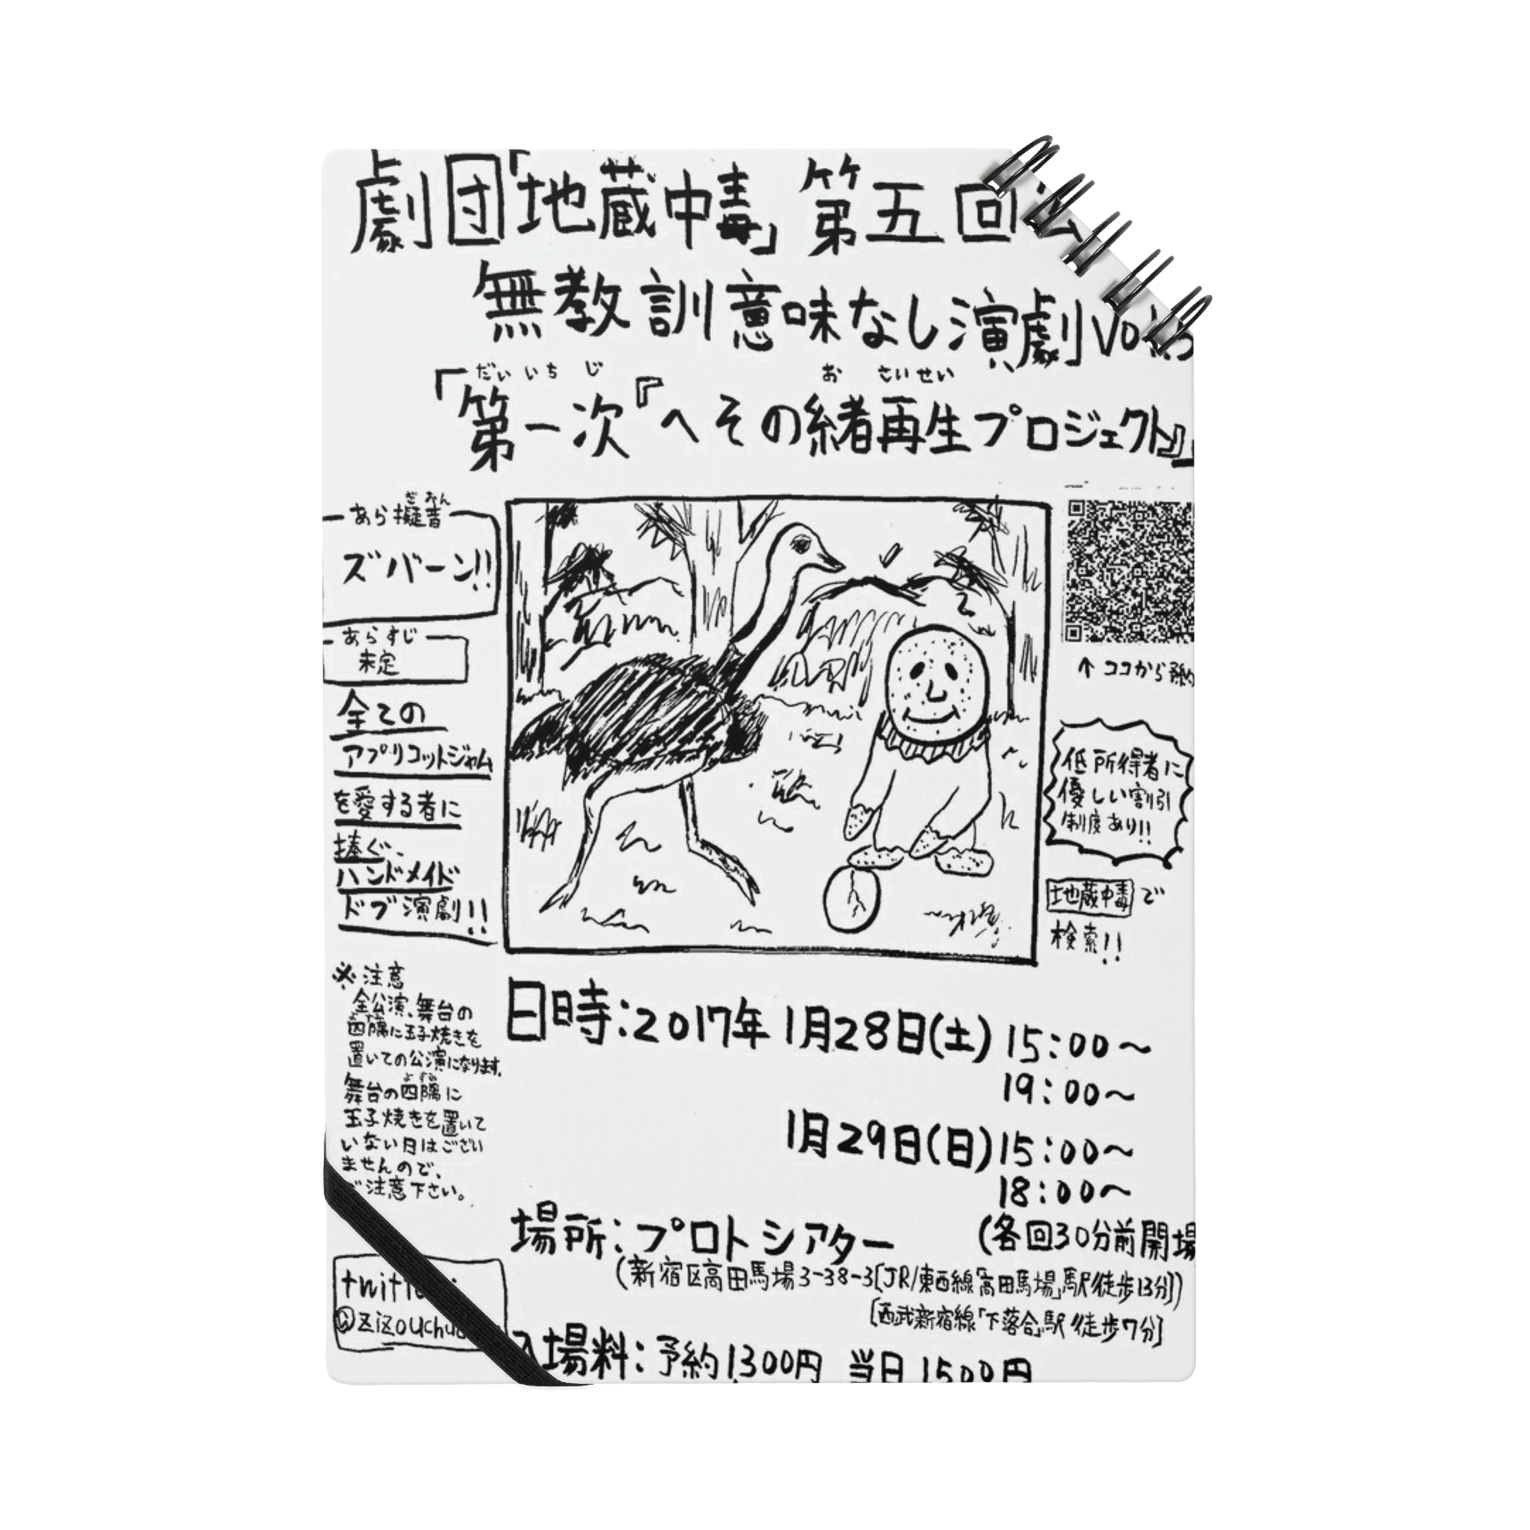 劇団「地蔵中毒」第五回
無教訓意味なし演劇vol.5
だいいちじ お さいせい
「第一次『へその緒再生プロジェクト』」
ぎおん
あら擬音
ズバーン!!
あらすじ
未定
全ての
アプリコットジャム
を愛する者に
捧ぐ、
ハンドメイド
ドブ演劇!!
↑ココから予約
低所得者に
優しい割引
制度あり!!
地蔵中毒で
検索!!
※注意
全公演、舞台の
四隅に玉子焼きを
置いての公演になります。
よすみ
舞台の四隅に
玉子焼きを置いて
いない日はござい
ませんので、
ご注意下さい。
日時:2017年1月28日(土)15:00〜
19:00〜
1月29日(日)15:00〜
18:00〜
(各回30分前開場
場所:プロトシアター
(新宿区高田馬場3-38-3[JR/東西線「高田馬場」駅/徒歩13分])
[西武新宿線「下落合」駅/徒歩7分]
入場料:予約1300円 当日1500円